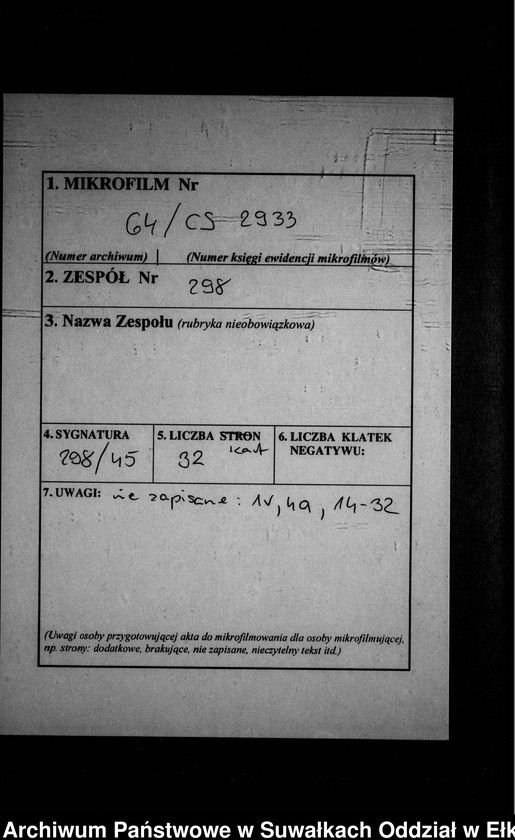 1. MIKROFILM Nr
64/CS-2933
(Numer archiwum) | (Numer księgi ewidencji mikrofilmów)
2. ZESPÓŁ Nr
298
3. Nazwa Zespołu (rubryka nieobowiązkowa)
4. SYGNATURA
298/45
5. LICZBA STRON
kart
32
6. LICZBA KLATEK
NEGATYWU:
7. UWAGI: nie zapisane: 1v, 4a, 14-32
(Uwagi osoby przygotowującej akta do mikrofilmowania dla osoby mikrofilmującej,
np. strony: dodatkowe, brakujące, nie zapisane, nieczytelny tekst itd.)
Archiwum Państwowe w Suwałkach Oddział w Ełk